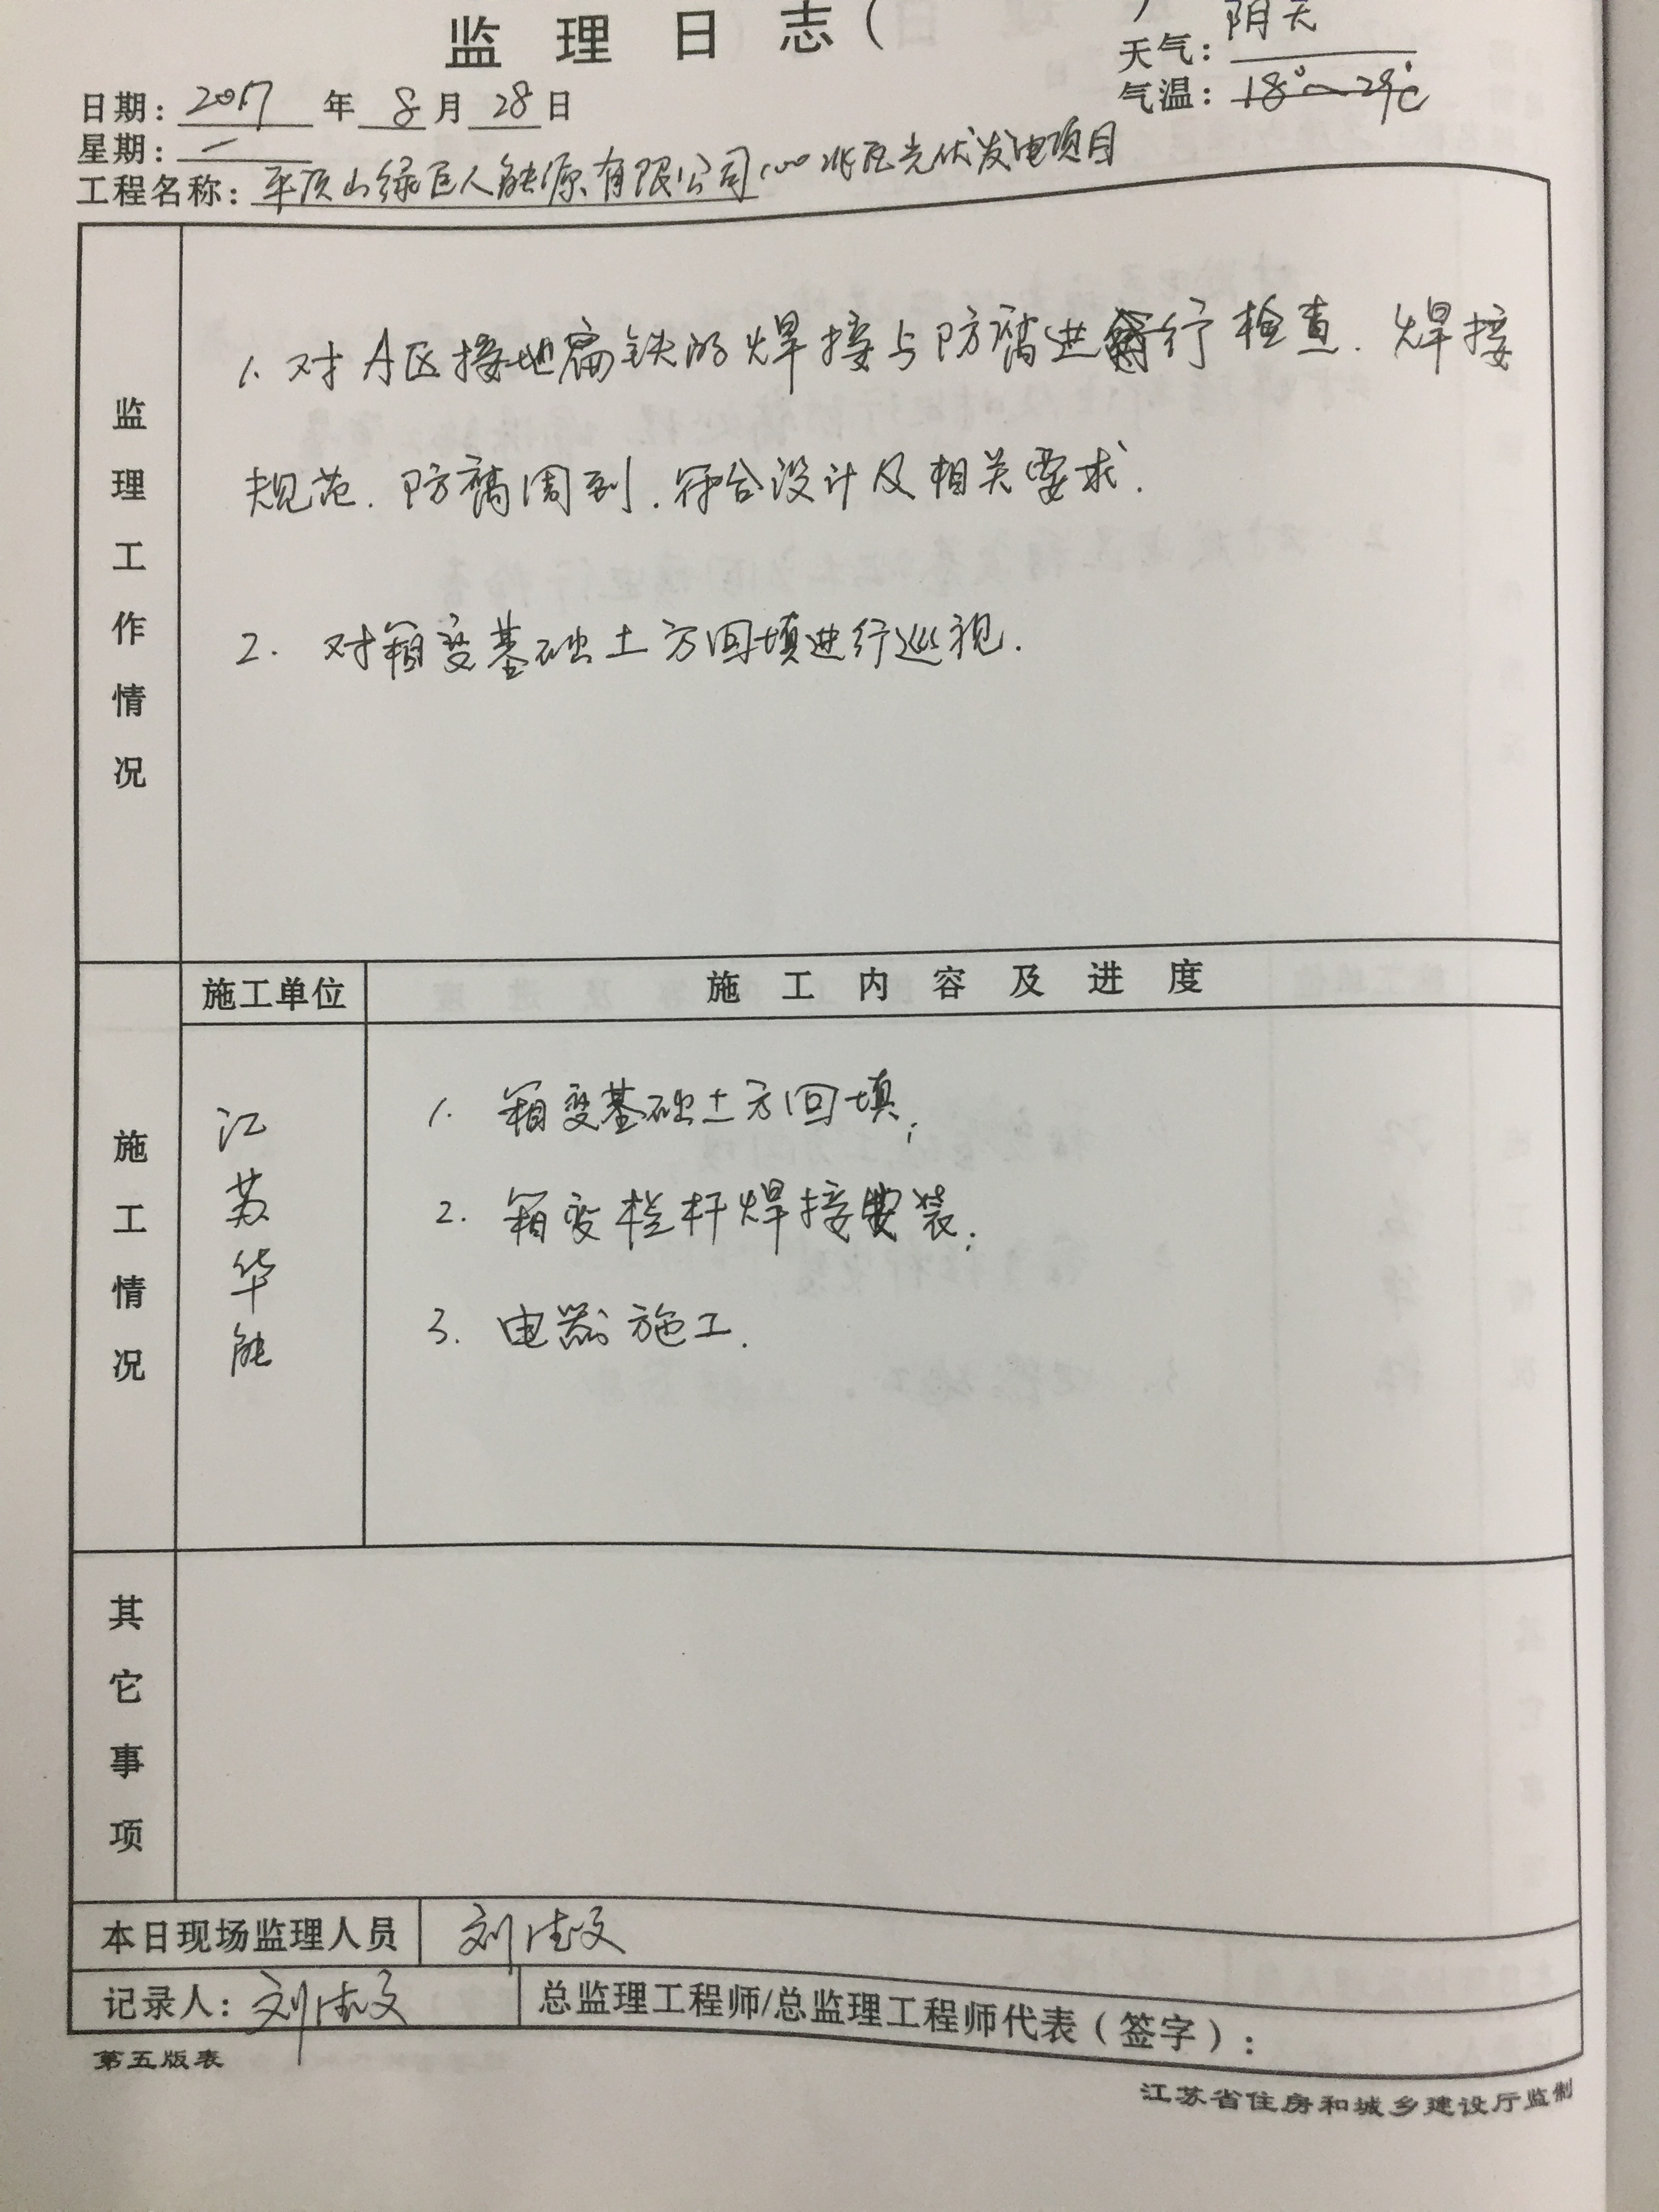 监理日志(
天气：阴天
日期：2017年8月28日
气温：18°~29℃
星期：一
工程名称：平顶山绿巨人能源有限公司100兆瓦光伏发电项目
监理工作情况
1. 对A区接地扁铁的焊接与防腐进行检查．焊接
规范．防腐周到．符合设计及相关要求．
2. 对箱变基础土方回填进行巡视．
施工单位
施工内容及进度
施工情况
江苏华能
1. 箱变基础土方回填；
2. 箱变栏杆焊接安装；
3. 电器施工．
其它事项
本日现场监理人员 刘
记录人：刘
总监理工程师/总监理工程师代表（签字）：
第五版表
江苏省住房和城乡建设厅监制